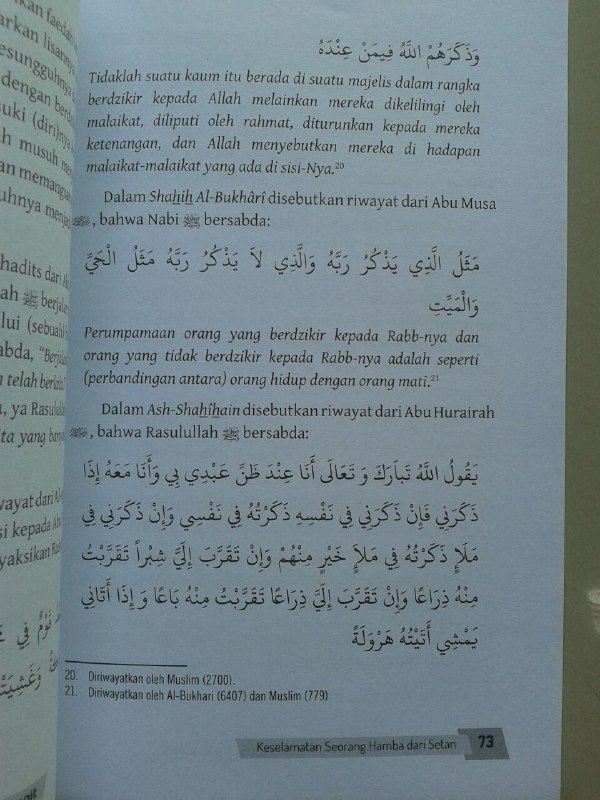 kan faedah
arkan lisannya
esungguhnya
dengan
suki (diri)nya
h musuh
an
uhnya
hadits dari
ah ﷺ
lui (sebuah)
bda, "
telah
, ya
ita yang
wayat dari
si kepada
yaksikan
وَذَكَرَهُمْ اللَّهُ فِيمَنْ عِنْدَهُ
Tidaklah suatu kaum itu berada di suatu majelis dalam rangka
berdzikir kepada Allah melainkan mereka dikelilingi oleh
malaikat, diliputi oleh rahmat, diturunkan kepada mereka
ketenangan, dan Allah menyebutkan mereka di hadapan
malaikat-malaikat yang ada di sisi-Nya.20
Dalam Shahih Al-Bukhârî disebutkan riwayat dari Abu Musa
, bahwa Nabi ﷺ bersabda:
مَثَلُ الَّذِي يَذْكُرُ رَبَّهُ وَالَّذِي لاَ يَذْكُرُ رَبَّهُ مَثَلُ الْحَيِّ
وَالْمَيِّتِ
Perumpamaan orang yang berdzikir kepada Rabb-nya dan
orang yang tidak berdzikir kepada Rabb-nya adalah seperti
(perbandingan antara) orang hidup dengan orang mati.21
Dalam Ash-Shahîhain disebutkan riwayat dari Abu Hurairah
, bahwa Rasulullah ﷺ bersabda:
يَقُولُ اللَّهُ تَبَارَكَ وَ تَعَالَى أَنَا عِنْدَ ظَنِّ عَبْدِي بِي وَأَنَا مَعَهُ إِذَا
ذَكَرَنِي فَإِنْ ذَكَرَنِي فِي نَفْسِهِ ذَكَرْتُهُ فِي نَفْسِي وَإِنْ ذَكَرَنِي فِي
مَلَإٍ ذَكَرْتُهُ فِي مَلَإٍ خَيْرٍ مِنْهُمْ وَإِنْ تَقَرَّبَ إِلَيَّ شِبْراً تَقَرَّبْتُ
مِنْهُ ذِرَاعًا وَإِنْ تَقَرَّبَ إِلَيَّ ذِرَاعًا تَقَرَّبْتُ مِنْهُ بَاعًا وَ إِذَا أَتَانِي
يَمْشِي أَتَيْتُهُ هَرْوَلَةً
20. Diriwayatkan oleh Muslim (2700).
21. Diriwayatkan oleh Al-Bukhari (6407) dan Muslim (779)
Keselamatan Seorang Hamba dari Setan 73